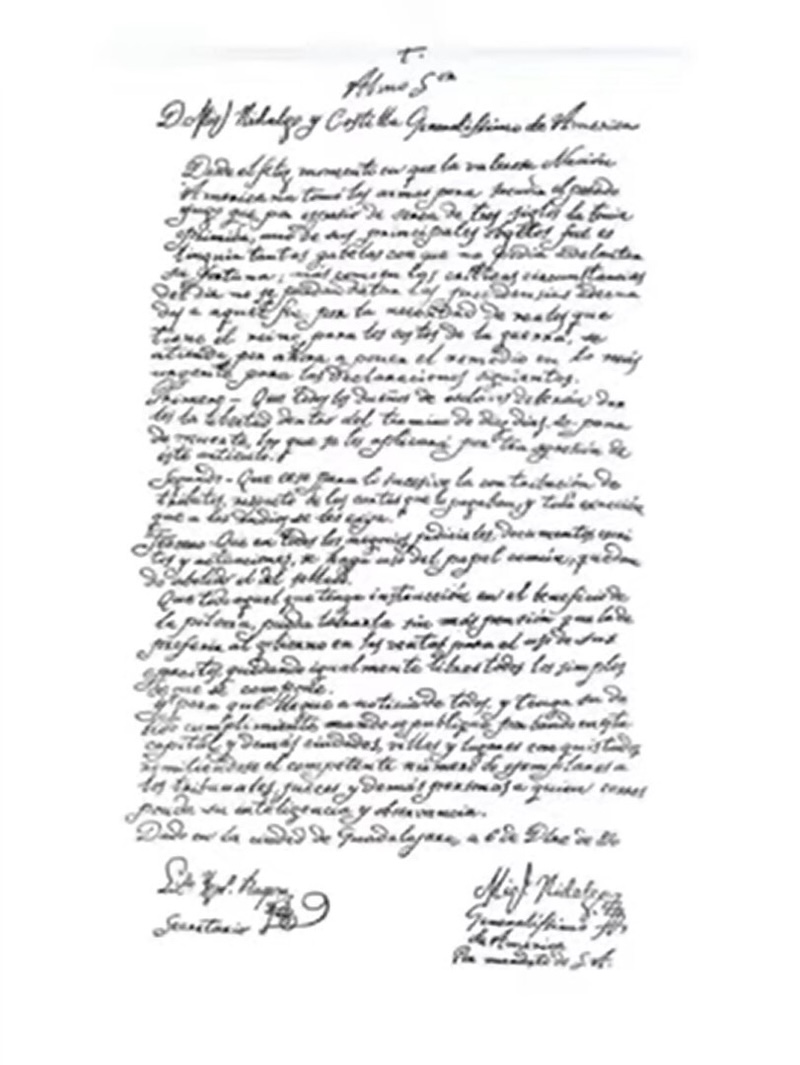 T.
Almo Sor
D. Migl Hidalgo y Costilla Generalissimo de America
Desde el feliz momento en que la valerosa Nación
Americana tomó las armas para sacudir el pesado
yugo que por espacio de cerca de tres siglos la tenia
oprimida, uno de sus principales objetos fue es
tinguir tantas gabelas con que no podia adelantar
su fortuna; más como en las críticas circunstancias
del dia no se puedan dictar las providencias
a aquel fin, por la necesidad de reales que
tiene el reino, para los costos de la guerra, se
atiende por ahora a poner el remedio en lo más
urgente para las declaraciones siguientes.
Primero - Que todos los dueños de esclavos deberán dar
les la libertad dentro del término de diez dias, so pena
de muerte, la que se les aplicará por
este artículo.
Segundo - Que cese para lo sucesivo la contribución de
tributos, respecto de las castas que lo pagaban, y toda exacción
que a los Indios se les exija.
Tercero - Que en todos los negocios judiciales, documentos, escri
tos y actuaciones, se haga uso del papel común, quedan
do abolido el del sellado.
Que todo aquel que tenga instrucción en el beneficio de
la pólvora, pueda labrarla sin más pensión que la de
preferir al gobierno en las ventas para el uso de sus
exercitos, quedando igualmente libres todos los simples
de que se compone.
Y para que llegue a noticia de todos y tenga su de
bido cumplimiento, mando se publique por bando en esta
capital, y demás ciudades, villas y lugares conquistados
remitiendose el competente número de ejemplares a
los tribunales, jueces y demás personas a quien corres
ponda su inteligencia y observancia.
Dado en la ciudad de Guadalajara, a 6 de Dbre de
Secretario
Migl. Hidalgo
Generalissimo
de America
Por mandato de S. A.